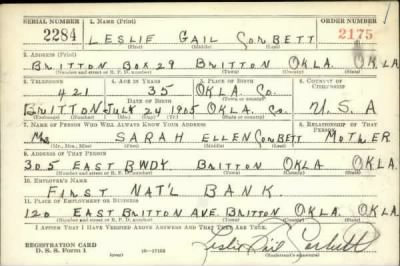 SERIAL NUMBER 1. NAME (Print) ORDER NUMBER
2284 LESLIE GAIL CORBETT 2175
(First) (Middle) (Last)
2. ADDRESS (Print)
BRITTON BOX 29 BRITTON OKLA. OKLA
(Number and street or R. F. D. number) (Town) (County) (State)
3. TELEPHONE 4. AGE IN YEARS 5. PLACE OF BIRTH 6. COUNTRY OF CITIZENSHIP
421 35 OKLA. CO.
DATE OF BIRTH (Town or county)
BRITTON JULY 24 1905 OKLA. CO. U.S.A
(Exchange) (Number) (Mo.) (Day) (Yr.) (State or country)
7. NAME OF PERSON WHO WILL ALWAYS KNOW YOUR ADDRESS 8. RELATIONSHIP OF THAT PERSON
SARAH ELLEN CORBETT MOTHER
(Mr., Mrs., Miss) (First) (Middle) (Last)
9. ADDRESS OF THAT PERSON
305 EAST BWDY BRITTON OKLA OKLA.
(Number and street or R. F. D. number) (Town) (County) (State)
10. EMPLOYER'S NAME
FIRST NAT'L BANK.
11. PLACE OF EMPLOYMENT OR BUSINESS
120 EAST BRITTON AVE. BRITTON OKLA OKLA
(Number and street or R. F. D. number) (Town) (County) (State)
I AFFIRM THAT I HAVE VERIFIED ABOVE ANSWERS AND THAT THEY ARE TRUE.
REGISTRATION CARD
D. S. S. Form 1 Leslie Gail Corbett
(Registrant's signature)